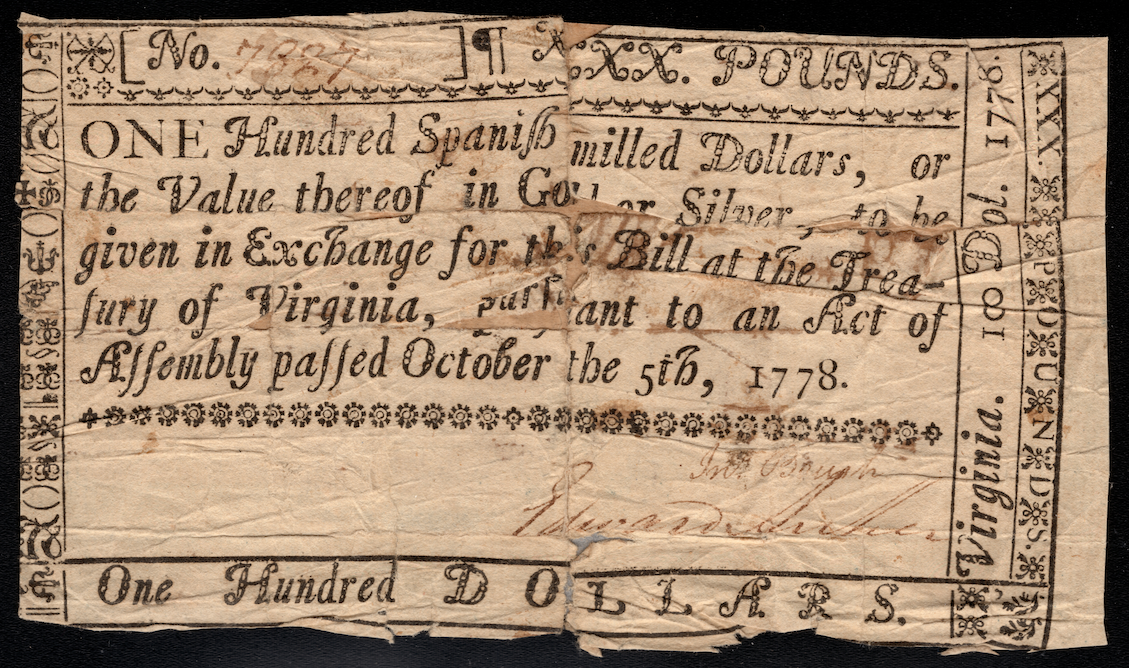 [No. 7887 ]¶ XXX. POUNDS.
ONE Hundred Spaniſh milled Dollars, or
the Value thereof in Gold or Silver, to be
given in Exchange for this Bill at the Trea-
ſury of Virginia, purſuant to an Act of
Æſſembly paſſed October the 5th, 1778.
Edward Archer
One Hundred DOLLARS.
Virginia. 100 Dol. 1778.
XXX. POUNDS.